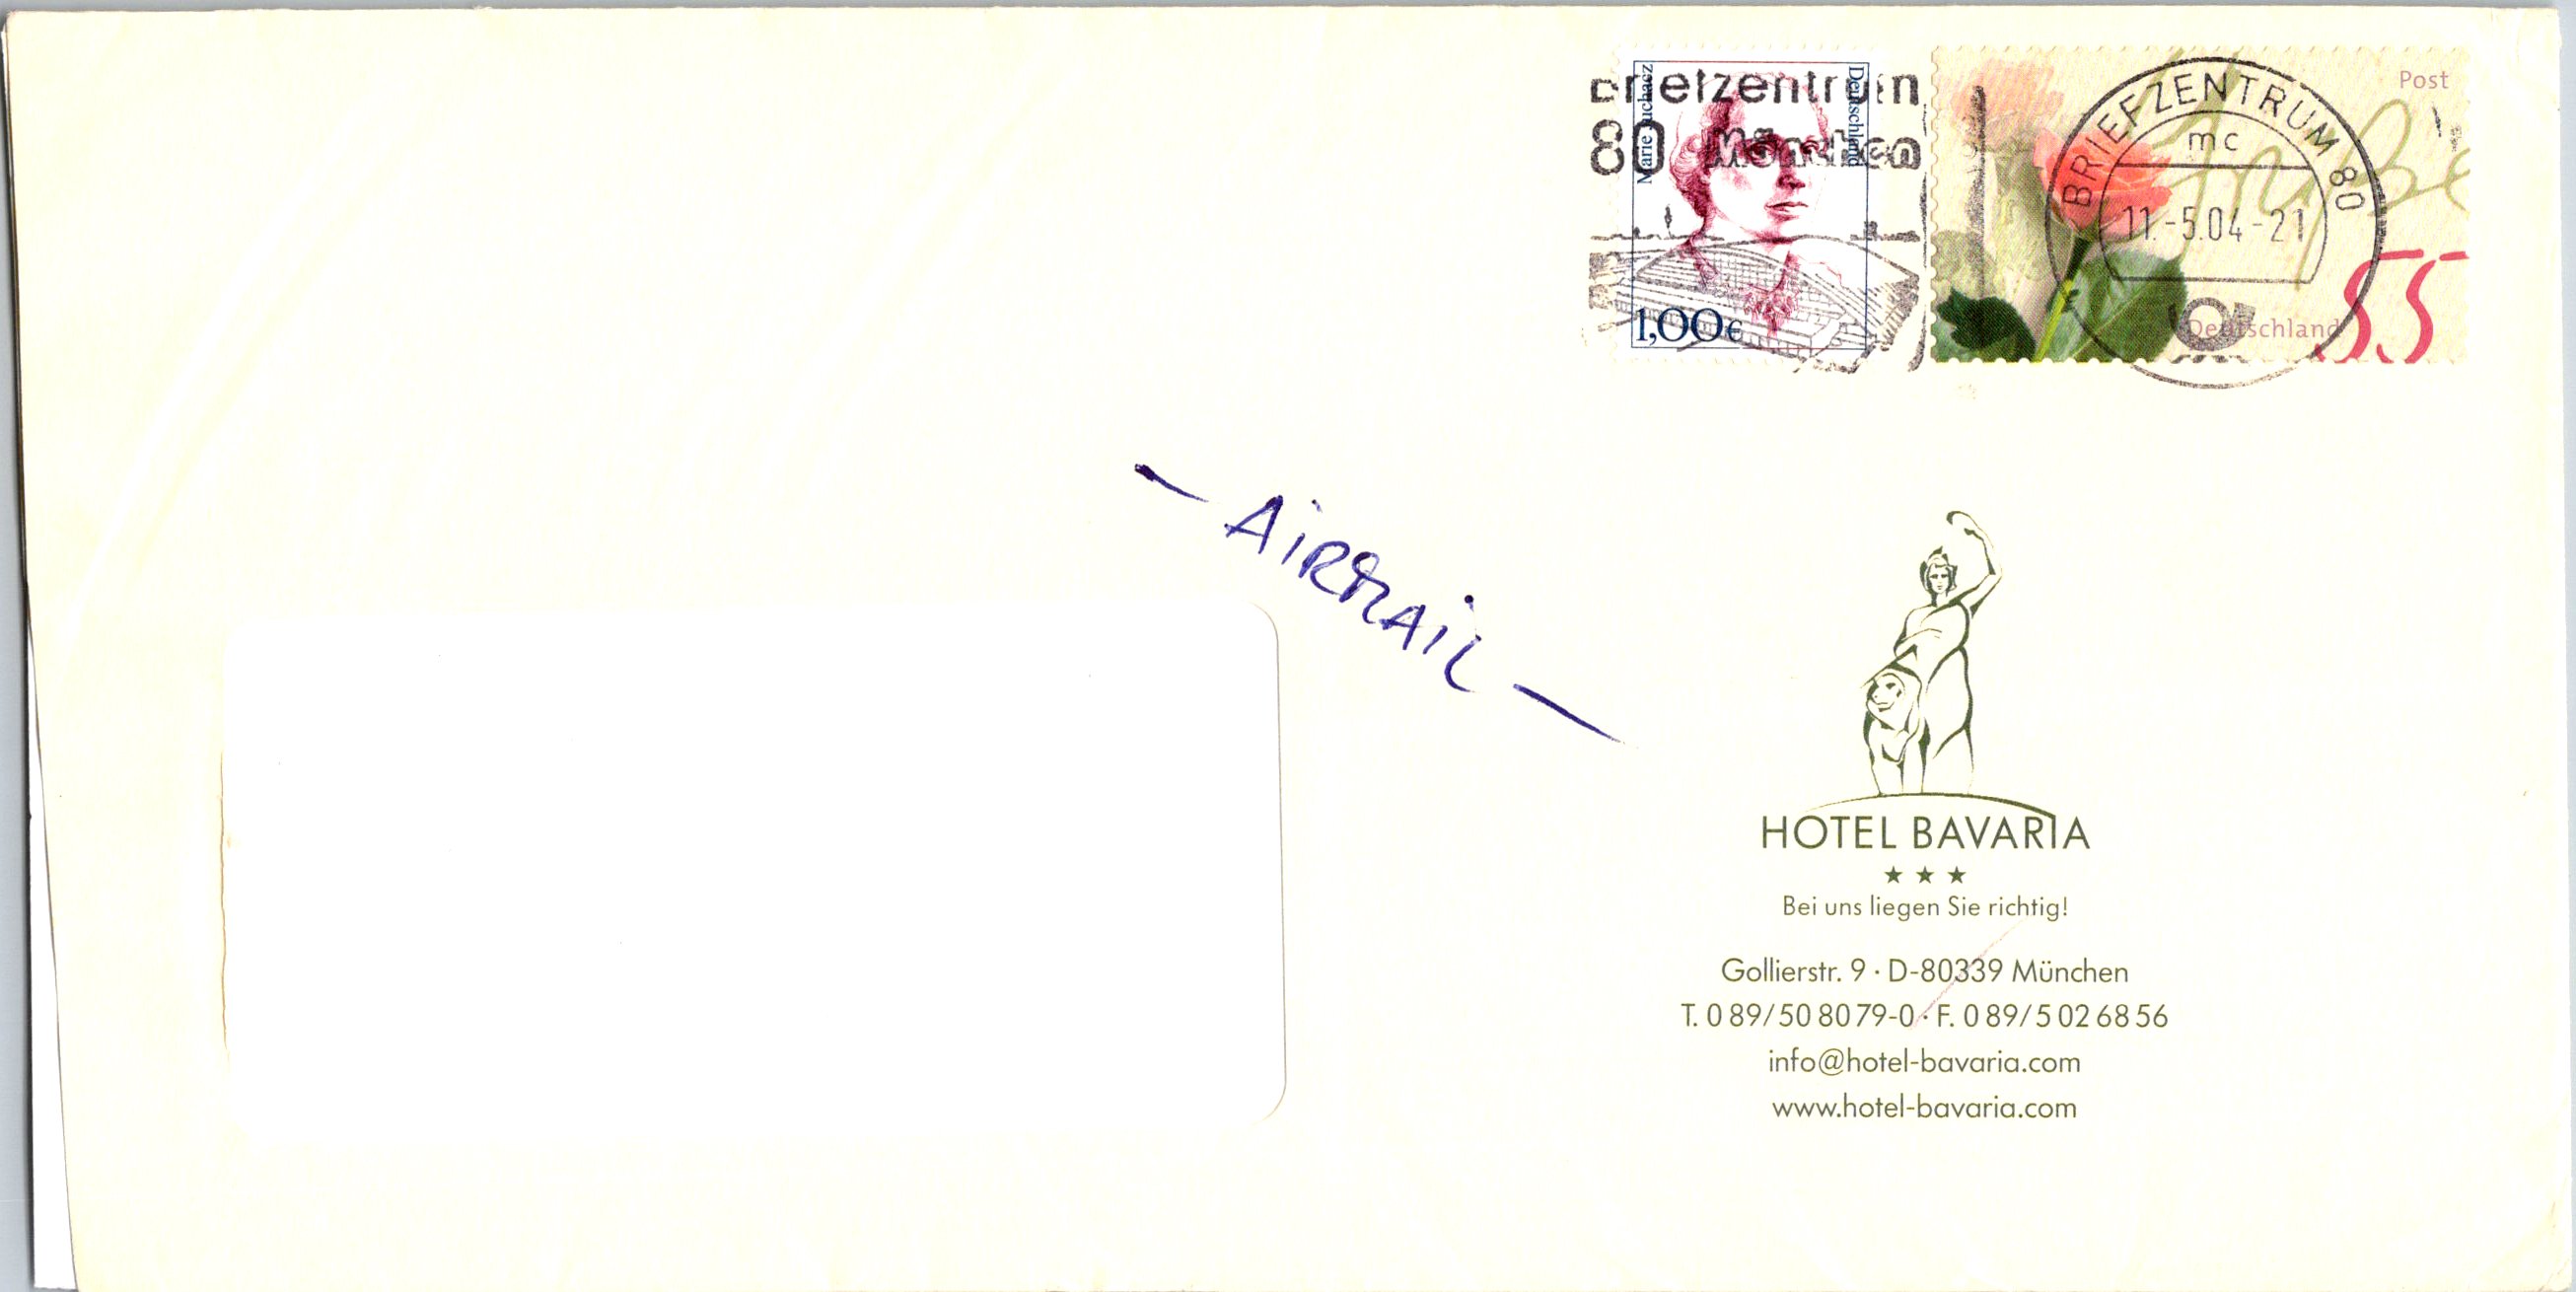 Briefzentrum
80 München
Marie Juchacz
Deutschland
1,00€
Post
Grüße
55
Deutschland
BRIEFZENTRUM 80
mc
11.-5.04-21
— AiRMAiL —
HOTEL BAVARIA
★ ★ ★
Bei uns liegen Sie richtig!
Gollierstr. 9 · D-80339 München
T. 0 89/50 80 79-0 · F. 0 89/5 02 68 56
info@hotel-bavaria.com
www.hotel-bavaria.com